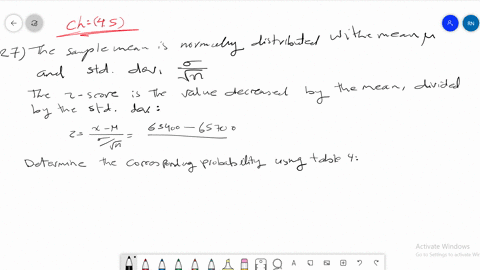 Ch:(4.5)
27) The sample mean is normally distributed with mean μ
and std. dev. σ/√n
The z-score is the value decreased by the mean, divided
by the std. dev:
z = x-μ / σ/√n = 63400 - 65700
Determine the corresponding probability using table 4:
RN
Activate Windows
Go to Settings to activate Windows.